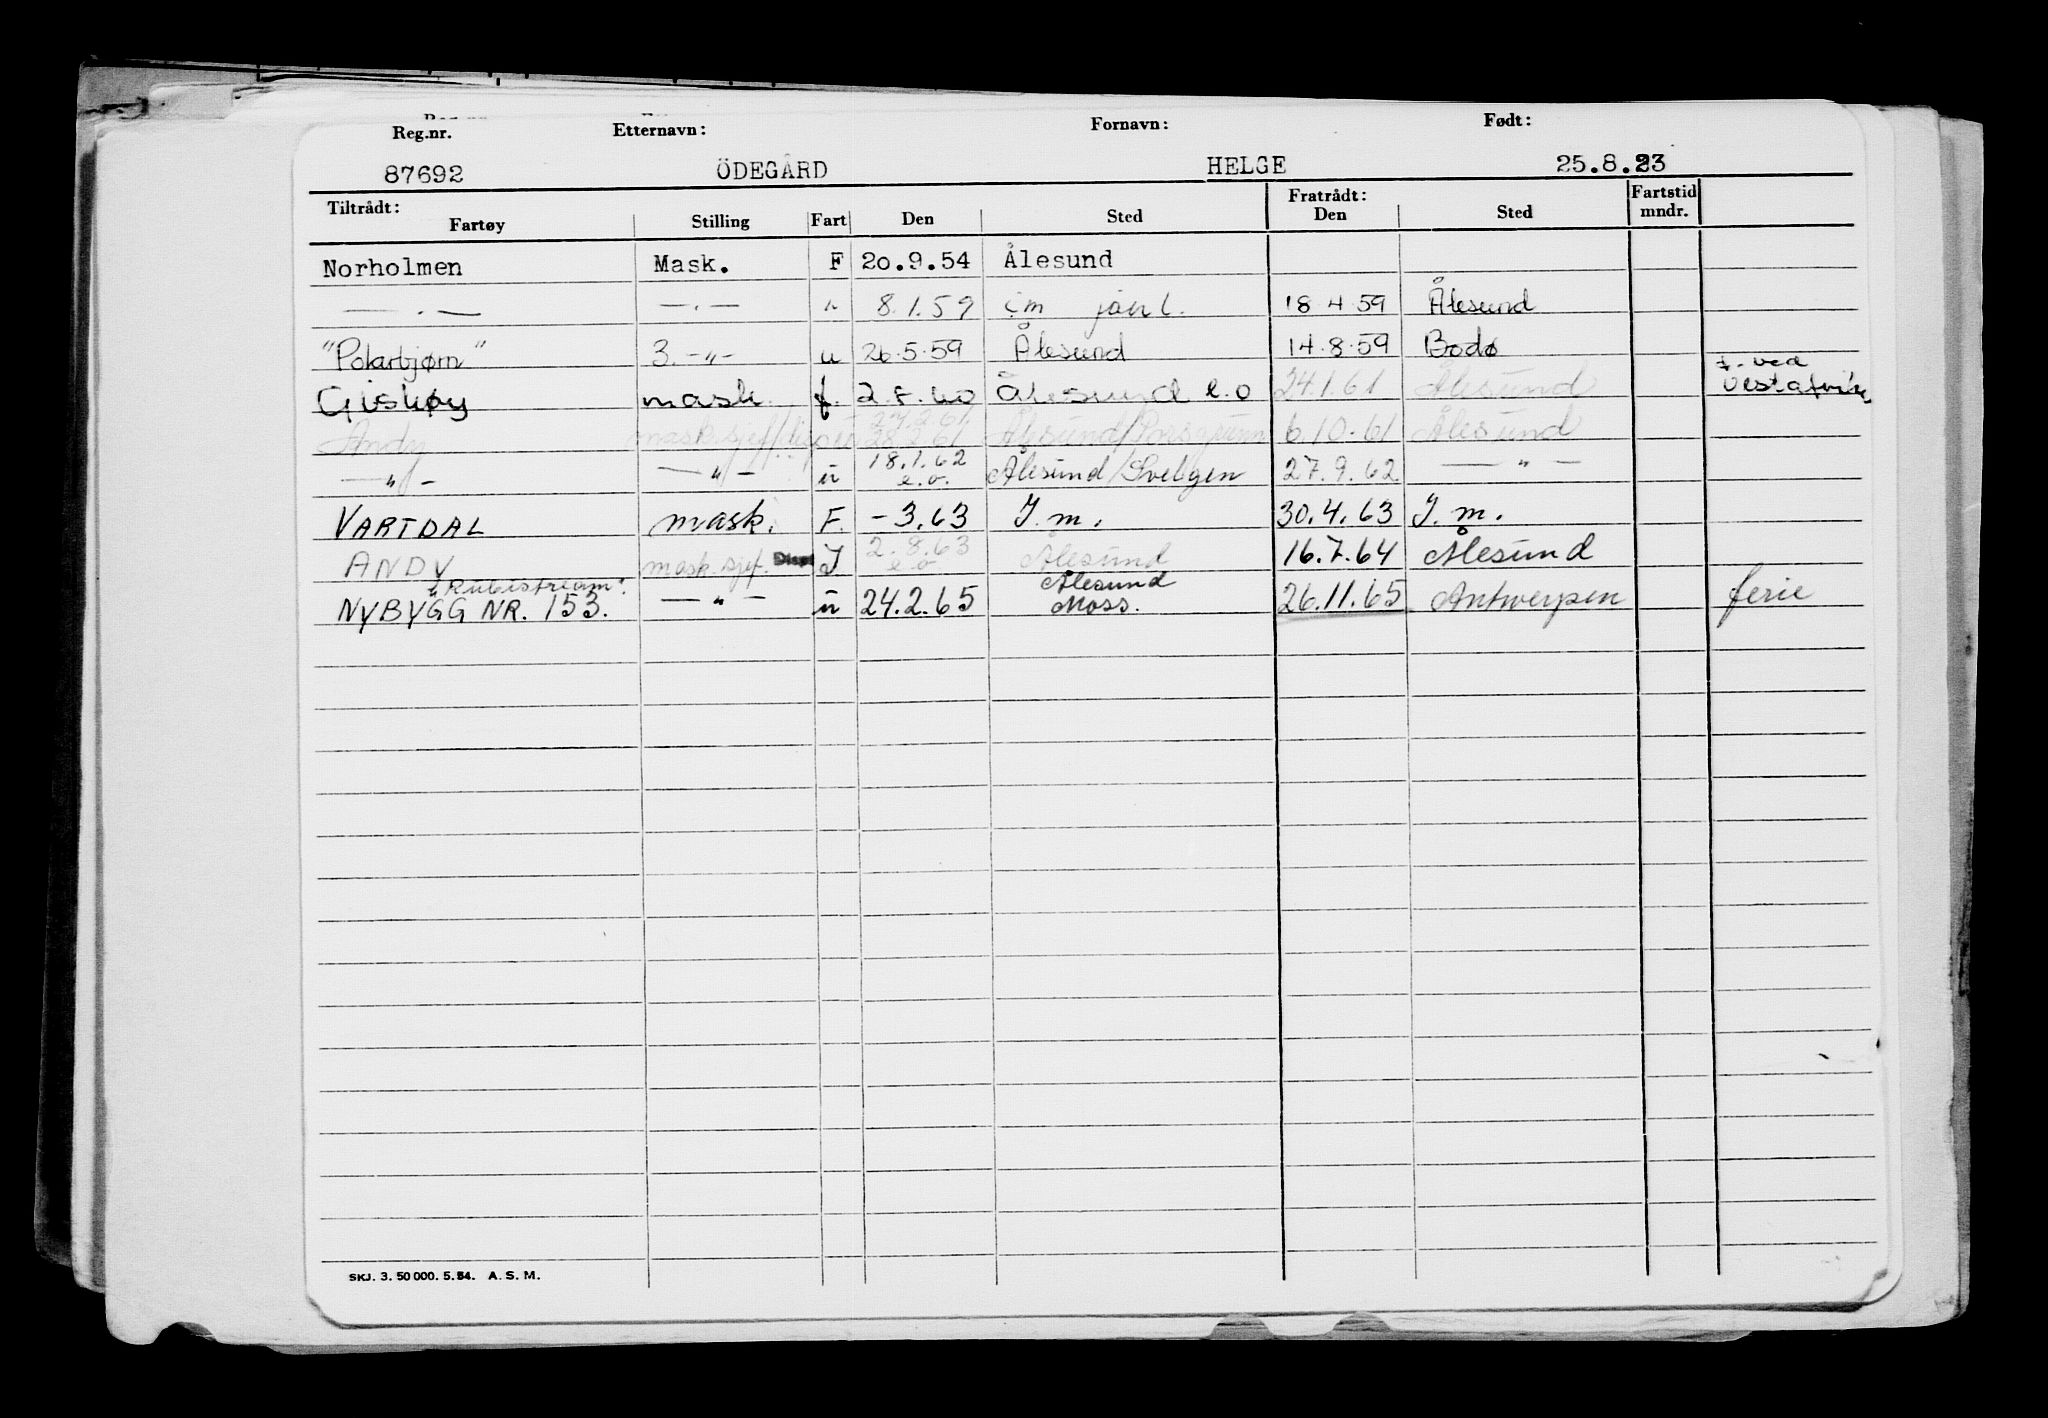 Reg.nr. Etternavn: Fornavn: Født:
87692 ÖDEGÅRD HELGE 25.8.23
Tiltrådt: Fratrådt: Fartstid
Fartøy Stilling Fart Den Sted Den Sted mndr.
Norholmen Mask. F 20.9.54 Ålesund
— . — — . — " 8.1.59 i.m 18.4.59 Ålesund
"Polarbjørn" 3. -"- u 26.5.59 Ålesund 14.8.59 Bodø
f. ved
Giskøy mask. f. 2.8.60 Ålesund e.o 24.1.61 Ålesund Vestafrika
27.2.61
Andy mask.sjef/ 28.2.61 Ålesund/Porsgrunn 6.10.61 Ålesund
18.1.62
— " — — " — u e.o. Ålesund/Svelgen 27.9.62 — " —
VARTDAL mask. F. -3.63 I.m. 30.4.63 I.m.
ANDY mask.sjef. I 2.8.63 e.o Ålesund 16.7.64 Ålesund
"Rubistream" Ålesund
NYBYGG NR. 153. — " — u 24.2.65 Moss. 26.11.65 Antwerpen ferie
SKJ. 3. 50 000. 5. 54. A. S. M.